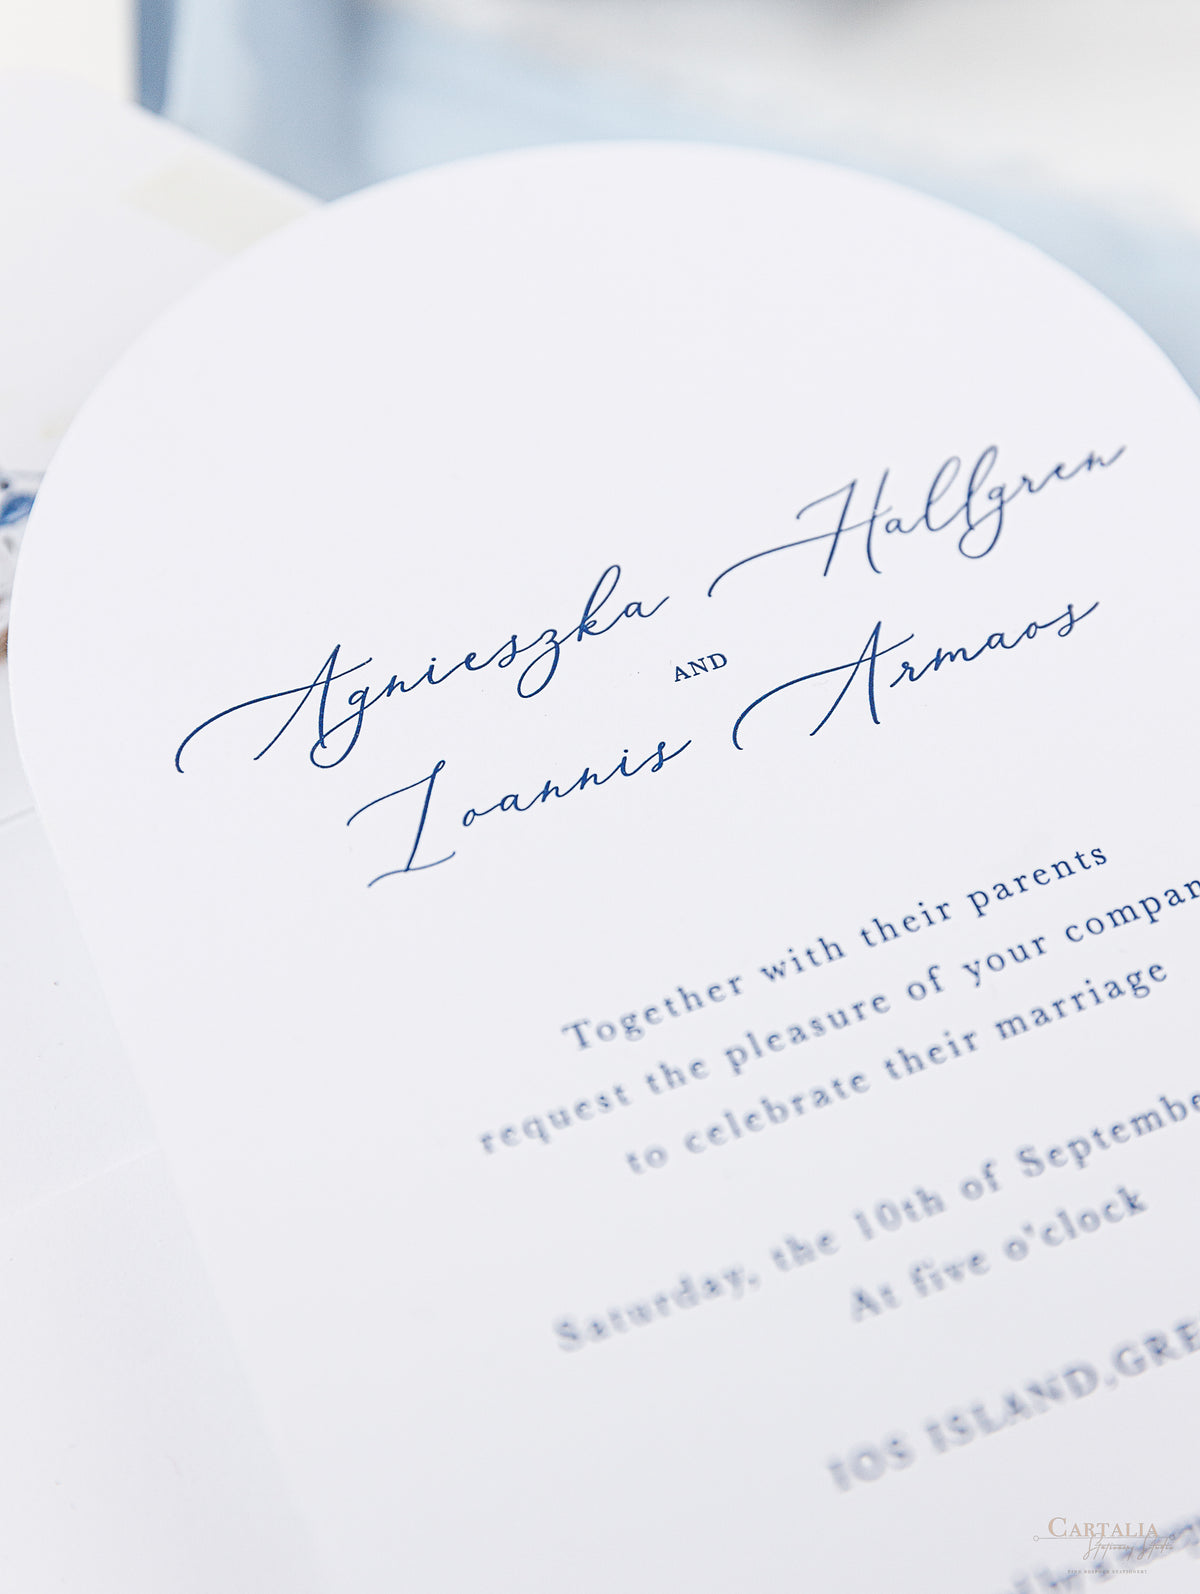 Agnieszka Hallgren
AND
Ioannis Armaos
Together with their parents
request the pleasure of your compan
to celebrate their marriage
Saturday, the 10th of Septembe
At five o'clock
IOS ISLAND, GRE
CARTALIA
FINE BESPOKE STATIONERY